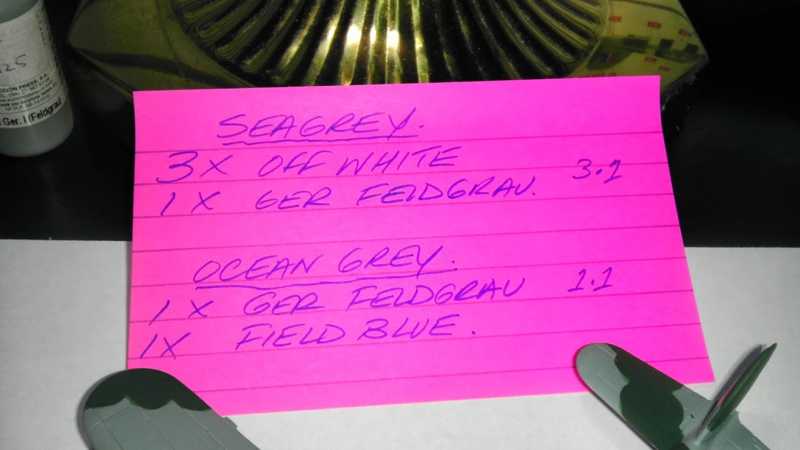 325
Ger. I (Feldgrau
SEAGREY.
3X OFF WHITE 3.1
1X GER FELDGRAU.
OCEAN GREY.
1X GER FELDGRAU 1.1
1X FIELD BLUE.